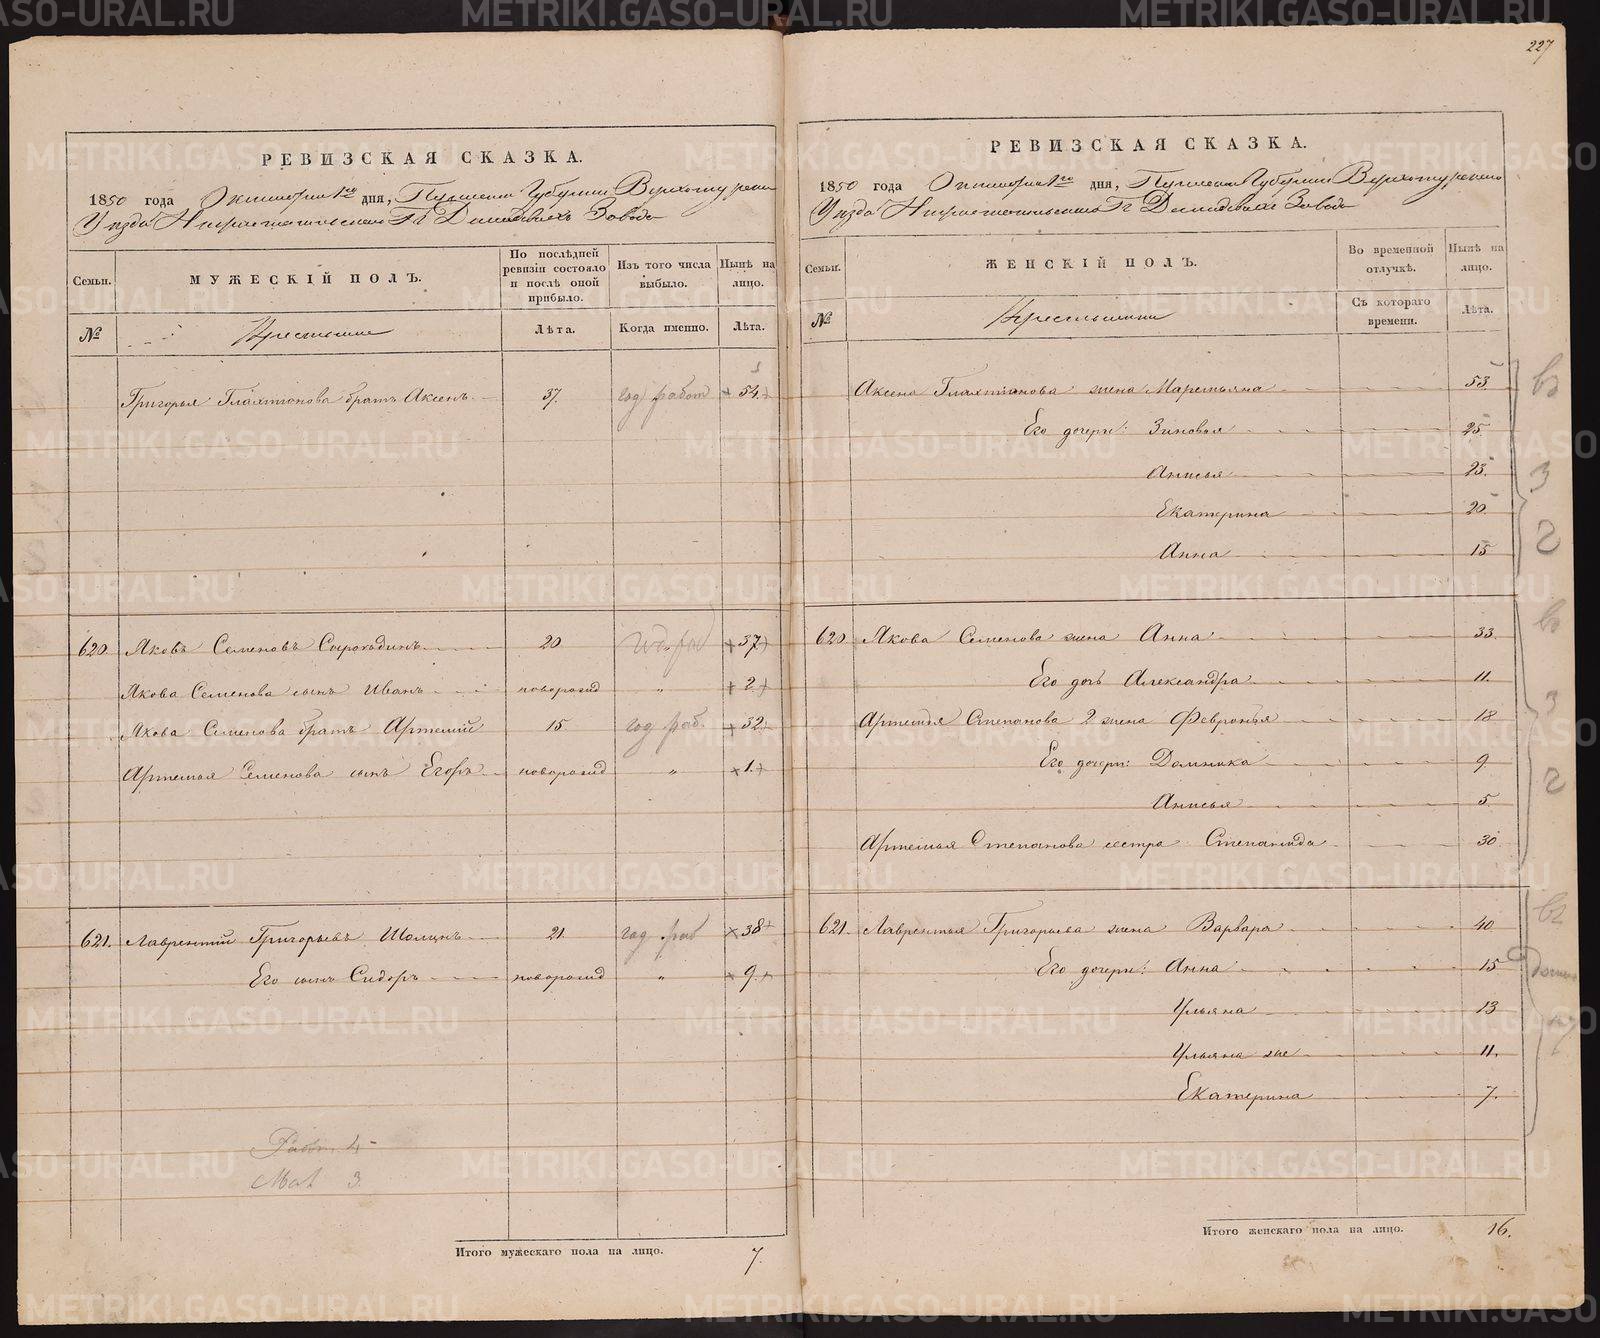 227
РЕВИЗСКАЯ СКАЗКА.
1850 года Октября 1го дня, Пермской Губернии Верхотурскаго
Уезда Нижнетагильскаго Гг Демидовыхъ Завода
Семьи.
МУЖЕСКІЙ ПОЛЪ.
По послѣдней ревизіи состояло и послѣ оной прибыло.
Изъ того числа выбыло.
Нынѣ на лицо.
№
Крестьяне
Лѣта.
Когда именно.
Лѣта.
Григорья Галахтионова братъ Аксенъ 37. год работ 54.
620. Яковъ Семеновъ 20 37.
Якова Семенова сынъ Иванъ новорожд " 2.
Якова Семенова братъ Артемій 15 год раб. 32.
Артемья Семенова сынъ Егоръ новорожд " 1.
621. Лаврентий Григорьевъ 21. год раб 38
Его сынъ Сидоръ новорожд " 9.
Работ 4
Мал 3.
Итого мужескаго пола на лицо. 7.
РЕВИЗСКАЯ СКАЗКА.
1850 года Октября 1го дня, Пермской Губернии Верхотурскаго
Уезда Нижнетагильскаго Гг Демидовыхъ Завода
Семьи.
ЖЕНСКІЙ ПОЛЪ.
Во временной отлучкѣ.
Нынѣ на лицо.
№
Крестьянки
Съ котораго времени.
Лѣта.
Аксена Галахтионова жена Маремьяна 53.
Его дочери: Зиновья 25
Анисья 23.
Екатерина 20
Анна 15
620. Якова Семенова жена Анна 33.
Его дочь Александра 11.
Артемья Степанова 2 жена Февронья 18
Его дочери: Домника 9.
Анисья 5.
Артемья Степанова сестра Степанида 30.
621. Лаврентья Григорьева жена Варвара 40
Его дочери: Анна 15
Ульяна 13
Ульяна же 11.
Екатерина 7.
Итого женскаго пола на лицо. 16.
METRIKI.GASO-URAL.RU